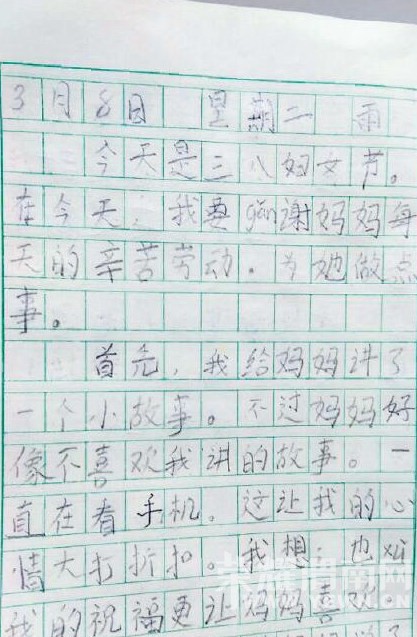 3月8日 星期二 雨
今天是三八妇女节。
在今天,我要gǎn谢妈妈每
天的辛苦劳动。为她做点
事。
首先,我给妈妈讲了
一个小故事。不过妈妈好
像不喜欢我讲的故事。一
直在看手机。这让我的心
情大打折扣。我想,也xǔ
我的祝福更让妈妈喜欢